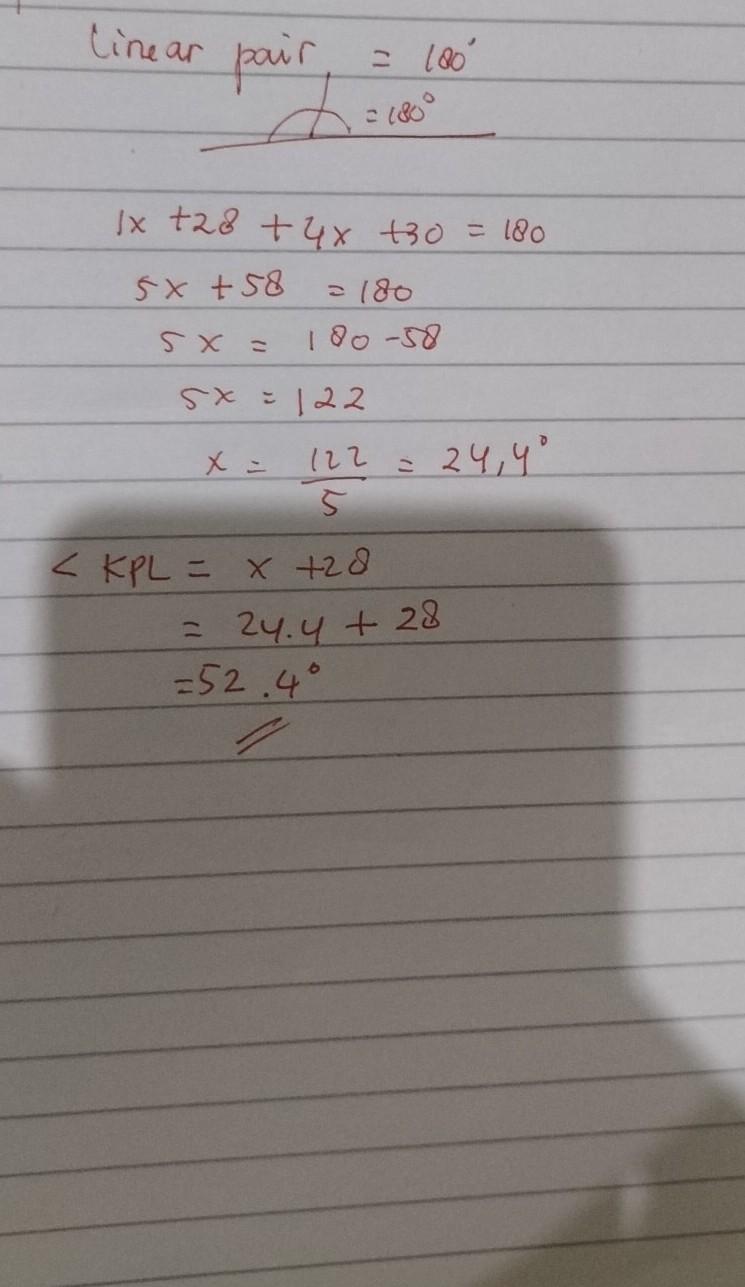 Linear pair = 180°
= 180°
1x + 28 + 4x + 30 = 180
5x + 58 = 180
5x = 180 - 58
5x = 122
x = 122/5 = 24,4°
< KPL = x + 28
= 24.4 + 28
= 52.4°